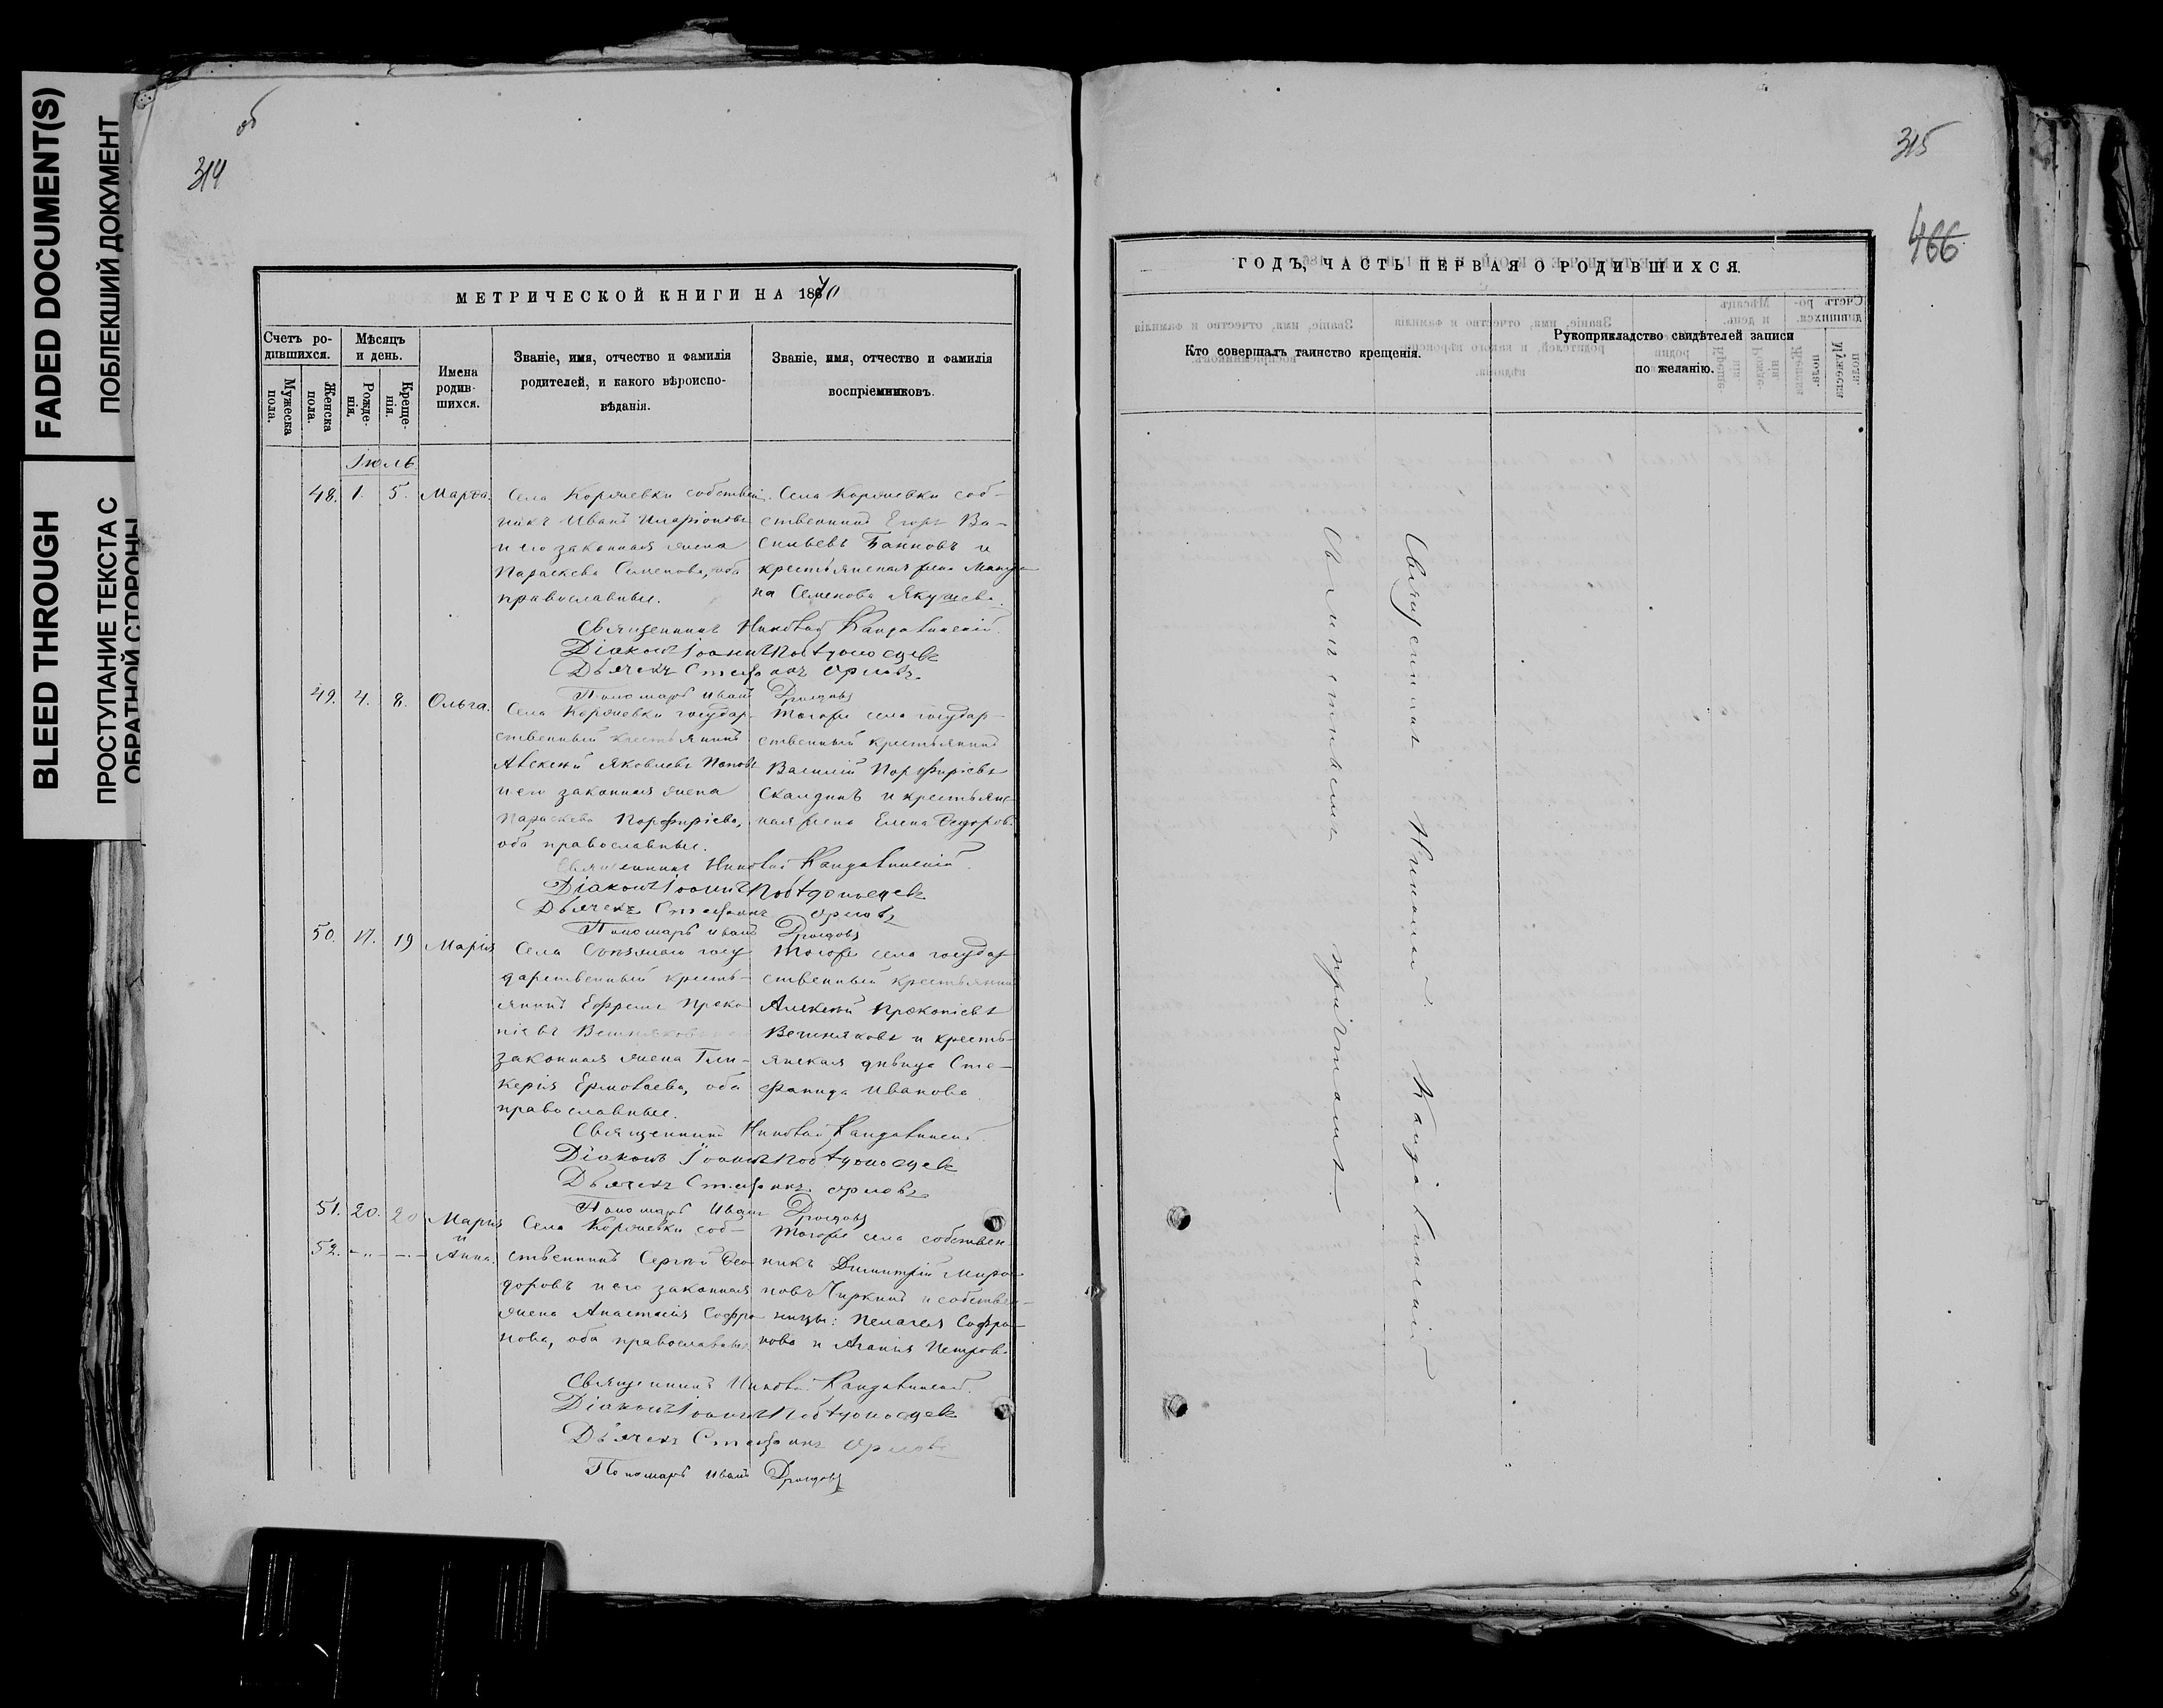 FADED DOCUMENT(S)
ПОБЛЕКШИЙ ДОКУМЕНТ
BLEED THROUGH
ПРОСТУПАНИЕ ТЕКСТА С
ОБРАТНОЙ СТОРОНЫ
об
314
МЕТРИЧЕСКОЙ КНИГИ НА 1870
Счетъ ро-
дившихся.
Мужеска
пола.
Женска
пола.
Мѣсяцъ
и день.
Рожде-
нія.
Креще-
нія.
Имена
родив-
шихся.
Званіе, имя, отчество и фамилія
родителей, и какого вѣроиспо-
вѣданія.
Званіе, имя, отчество и фамилія
воспріемниковъ.
Іюль
48. 1. 5. Марѳа.
Села собствен
никъ Иванъ
и его законная жена
Параскева Семенова, оба
православные.
Села соб-
ственникъ Егоръ Ва-
сильевъ и
крестьянская жена
на Семенова Якушева.
Священникъ Николай Кандалинскій.
Діаконъ Іоаннъ
Дьячекъ Стефанъ Орловъ
Пономарь Иванъ Дроздовъ
49. 4. 8. Ольга.
Села государ-
ственный крестьянинъ
Алексѣй Яковлевъ Поповъ
и его законная жена
Параскева Порфиріева,
оба православные.
Тогоже села государ-
ственный крестьянинъ
Василій Порфиріевъ
Скалдинъ и крестьян-
ская жена Елена Ѳедоров.
Священникъ Николай Кандалинскій
Діаконъ Іоаннъ
Дьячекъ Стефанъ Орловъ
Пономарь Иванъ Дроздовъ
50. 17. 19 Марія
Села госу
дарственный кресть-
янинъ Ефремъ Проко
піевъ Вешняковъ
законная жена Гли-
керія Ермолаева, оба
православные.
Тогоже села государ
ственный крестьянинъ
Алексѣй Прокопіевъ
Вешняковъ и кресть-
янская дѣвица Сте-
фанида Иванова.
Священникъ Николай Кандалинскій
Діаконъ Іоаннъ
Дьячекъ Стефанъ Орловъ
Пономарь Иванъ Дроздовъ
51. 20. 20 Марія
и
52. -"- -"- Анна.
Села соб-
ственникъ Сергѣй Ѳео
доровъ и его законная
жена Анастасія Софро
нова, оба православные
Тогоже села собствен
никъ Димитрій Миро
новъ Чиркинъ и собствен-
ницы: Пелагея Софро-
нова и Агапія Петрова
Священникъ Николай Кандалинскій.
Діаконъ Іоаннъ
Дьячекъ Стефанъ Орловъ
Пономарь Иванъ Дроздовъ
315
466
ГОДЪ, ЧАСТЬ ПЕРВАЯ О РОДИВШИХСЯ.
Кто совершалъ таинство крещенія.
Рукоприкладство свидѣтелей записи
по желанію.
Священникъ Николай Кандалинскій
съ причтомъ.